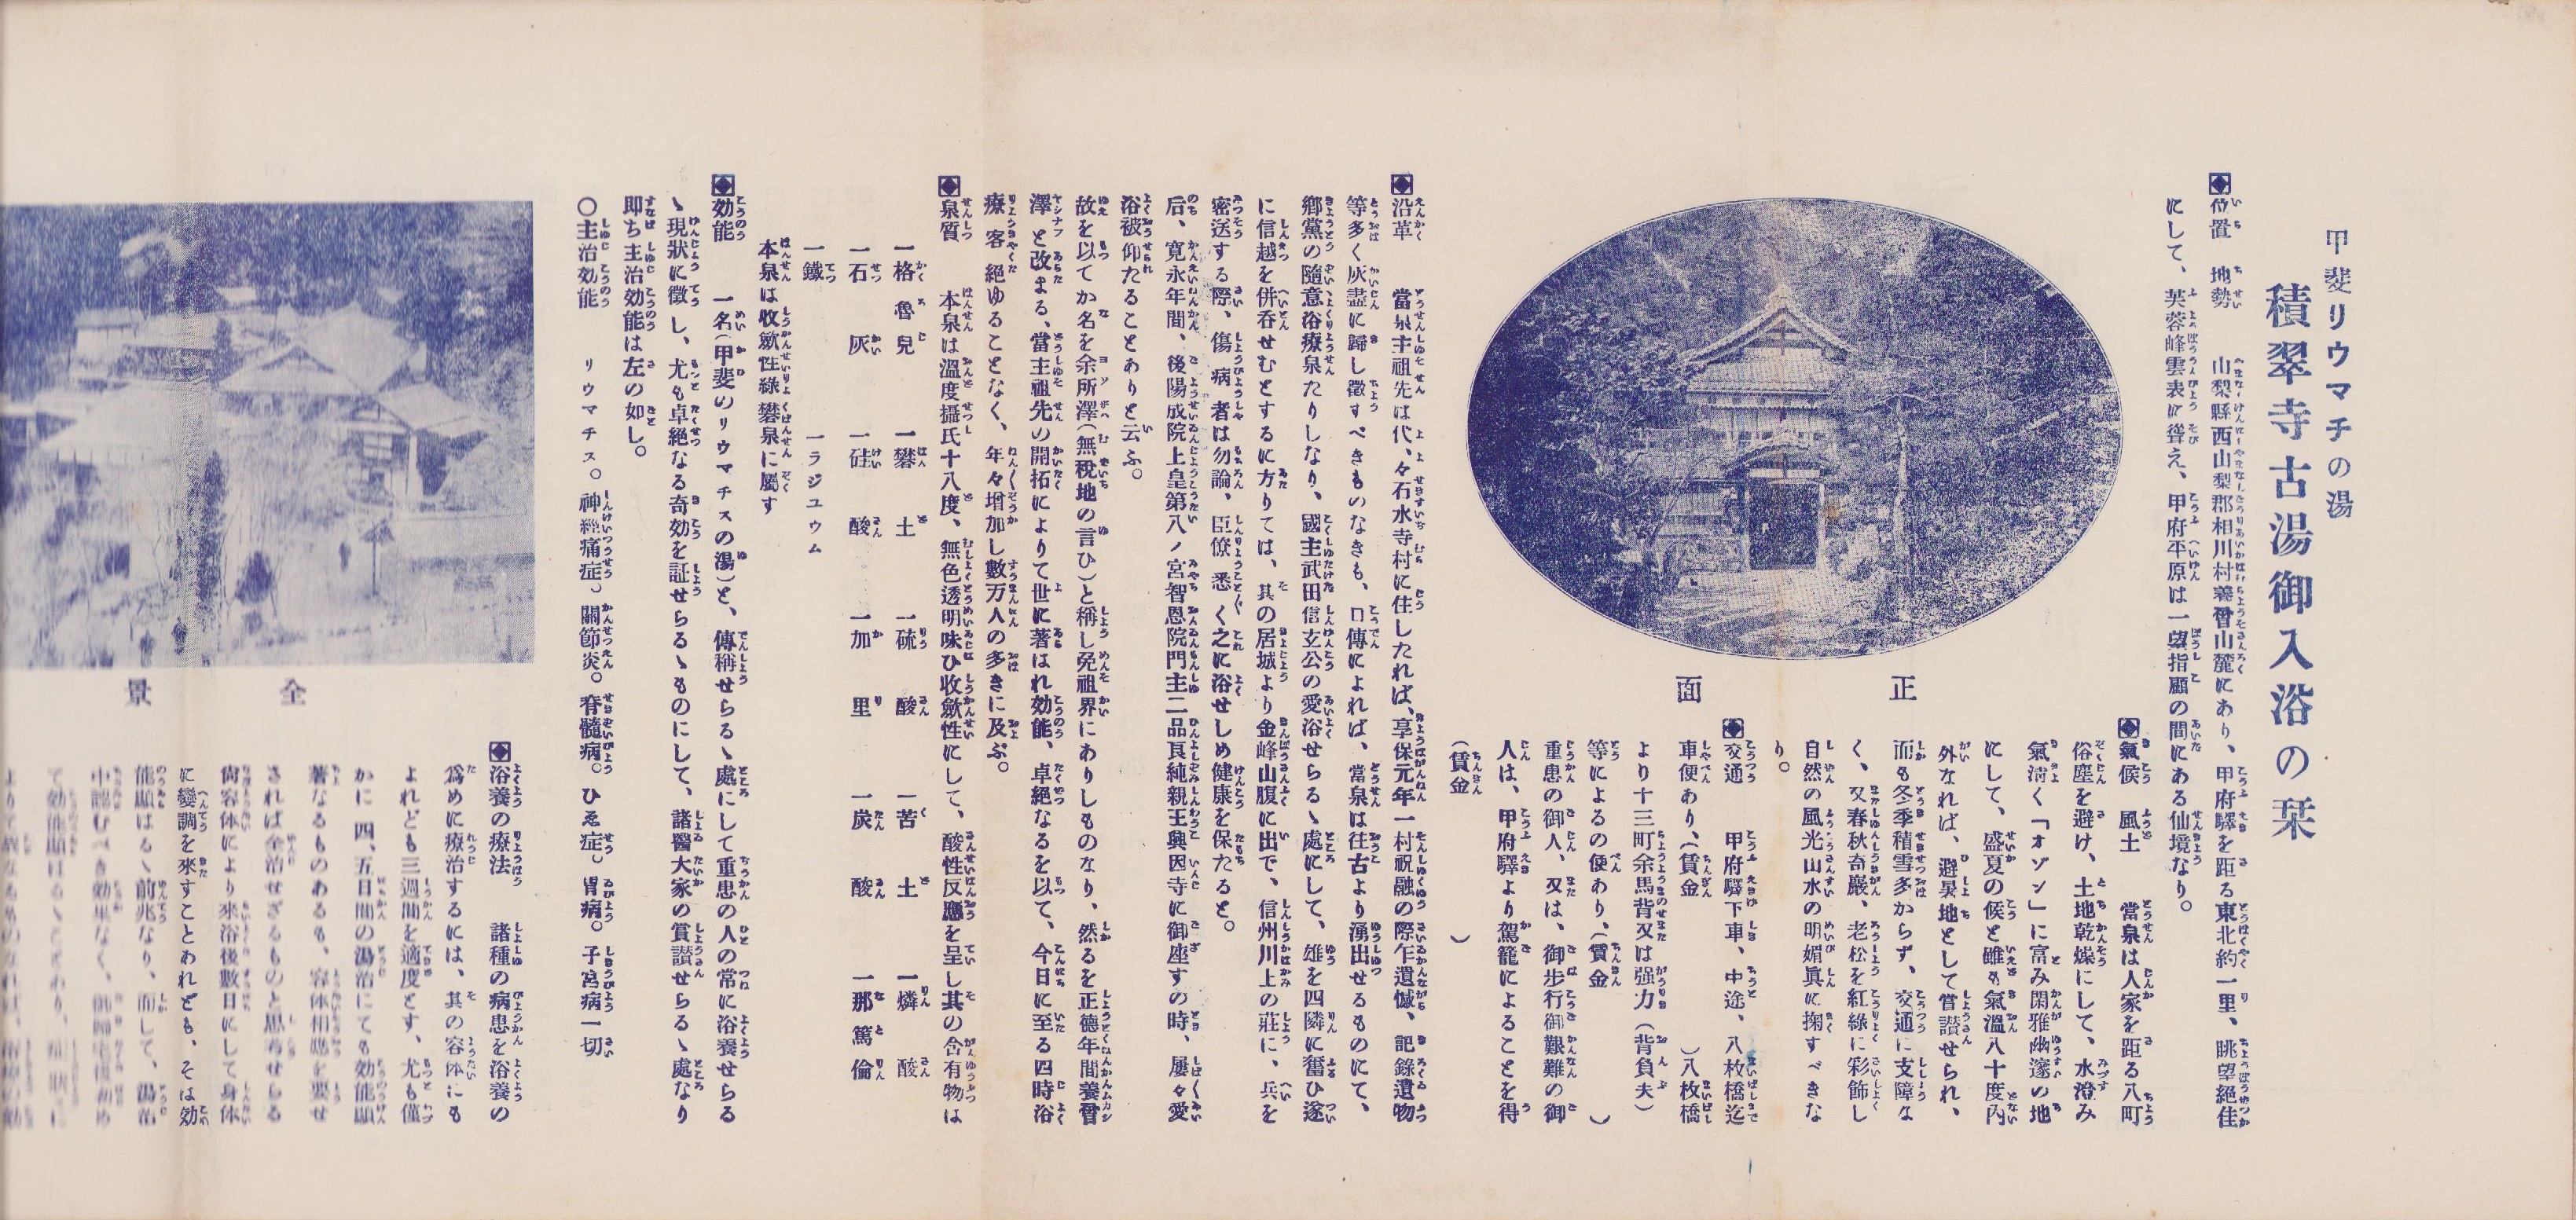 甲斐リウマチの湯
積翠寺古湯御入浴の栞
位置 地勢 山梨縣西山梨郡相川村養晉山麓にあり、甲府驛を距る東北約一里、眺望絶佳
にして、芙蓉峰雲表に聳え、甲府平原は一望指顧の間にある仙境なり。
氣候 風土 當泉は人家を距る八町
俗塵を避け、土地乾燥にして、水澄み
氣淸く「オゾン」に富み閑雅幽邃の地
にして、盛夏の候と雖も氣溫八十度內
外なれば、避暑地として賞讃せられ、
而も冬季積雪多からず、交通に支障な
く、又春秋奇巖、老松を紅綠に彩飾し
自然の風光山水の明媚眞に掬すべきな
り。
正面
交通 甲府驛下車、中途、八枚橋迄
車便あり、(賃金 )八枚橋
より十三町余馬背又は强力(背負夫)
等によるの便あり、(賃金 )
重患の御人、又は、御步行御艱難の御
人は、甲府驛より駕籠によることを得
(賃金 )
沿革 當泉主祖先は代、々石水寺村に住したれば、享保元年一村祝融の際乍遺憾、記錄遺物
等多く灰盡に歸し徵すべきものなきも、口傳によれば、當泉は往古より湧出せるものにて、
鄕黨の隨意浴療泉たりしなり、國主武田信玄公の愛浴せらるゝ處にして、雄を四隣に奮ひ遂
に信越を併呑せむとするに方りては、其の居城より金峰山腹に出で、信州川上の莊に、兵を
密送する際、傷病者は勿論、臣僚悉く之に浴せしめ健康を保たると。
后、寛永年間、後陽成院上皇第八ノ宮智恩院門主二品良純親王興因寺に御座すの時、屢々愛
浴被仰たることありと云ふ。
故を以てか名を余所澤(無稅地の言ひ)と稱し免祖界にありしものなり、然るを正德年間養晉
澤と改まる、當主祖先の開拓によりて世に著はれ効能、卓絕なるを以て、今日に至る四時浴
療客絕ゆることなく、年々增加し數万人の多きに及ぶ。
泉質 本泉は溫度攝氏十八度、無色透明味ひ收斂性にして、酸性反應を呈し其の含有物は
一格魯兒 一礬土 一硫酸 一苦土 一燐酸
一石灰 一硅酸 一加里 一炭酸 一那篤倫
一鐵 一ラジユウム
本泉は收斂性綠礬泉に屬す
効能 一名(甲斐のリウマチスの湯)と、傳稱せらるゝ處にして重患の人の常に浴養せらる
ゝ現狀に徵し、尤も卓絕なる奇効を証せらるゝものにして、諸醫大家の賞讃せらるゝ處なり
卽ち主治効能は左の如し。
○主治効能 リウマチス。神經痛症。關節炎。脊髓病。ひゑ症。胃病。子宮病一切
全景
浴養の療法 諸種の病患を浴養の
爲めに療治するには、其の容体にも
よれども三週間を適度とす、尤も僅
かに四、五日間の湯治にても効能顯
著なるものあるも、容体相應を要せ
されば全治せざるものと思考せらる
尙容体により來浴後數日にして身体
に變調を來すことあれども、そは効
能顯はるゝ前兆なり、而して、湯治